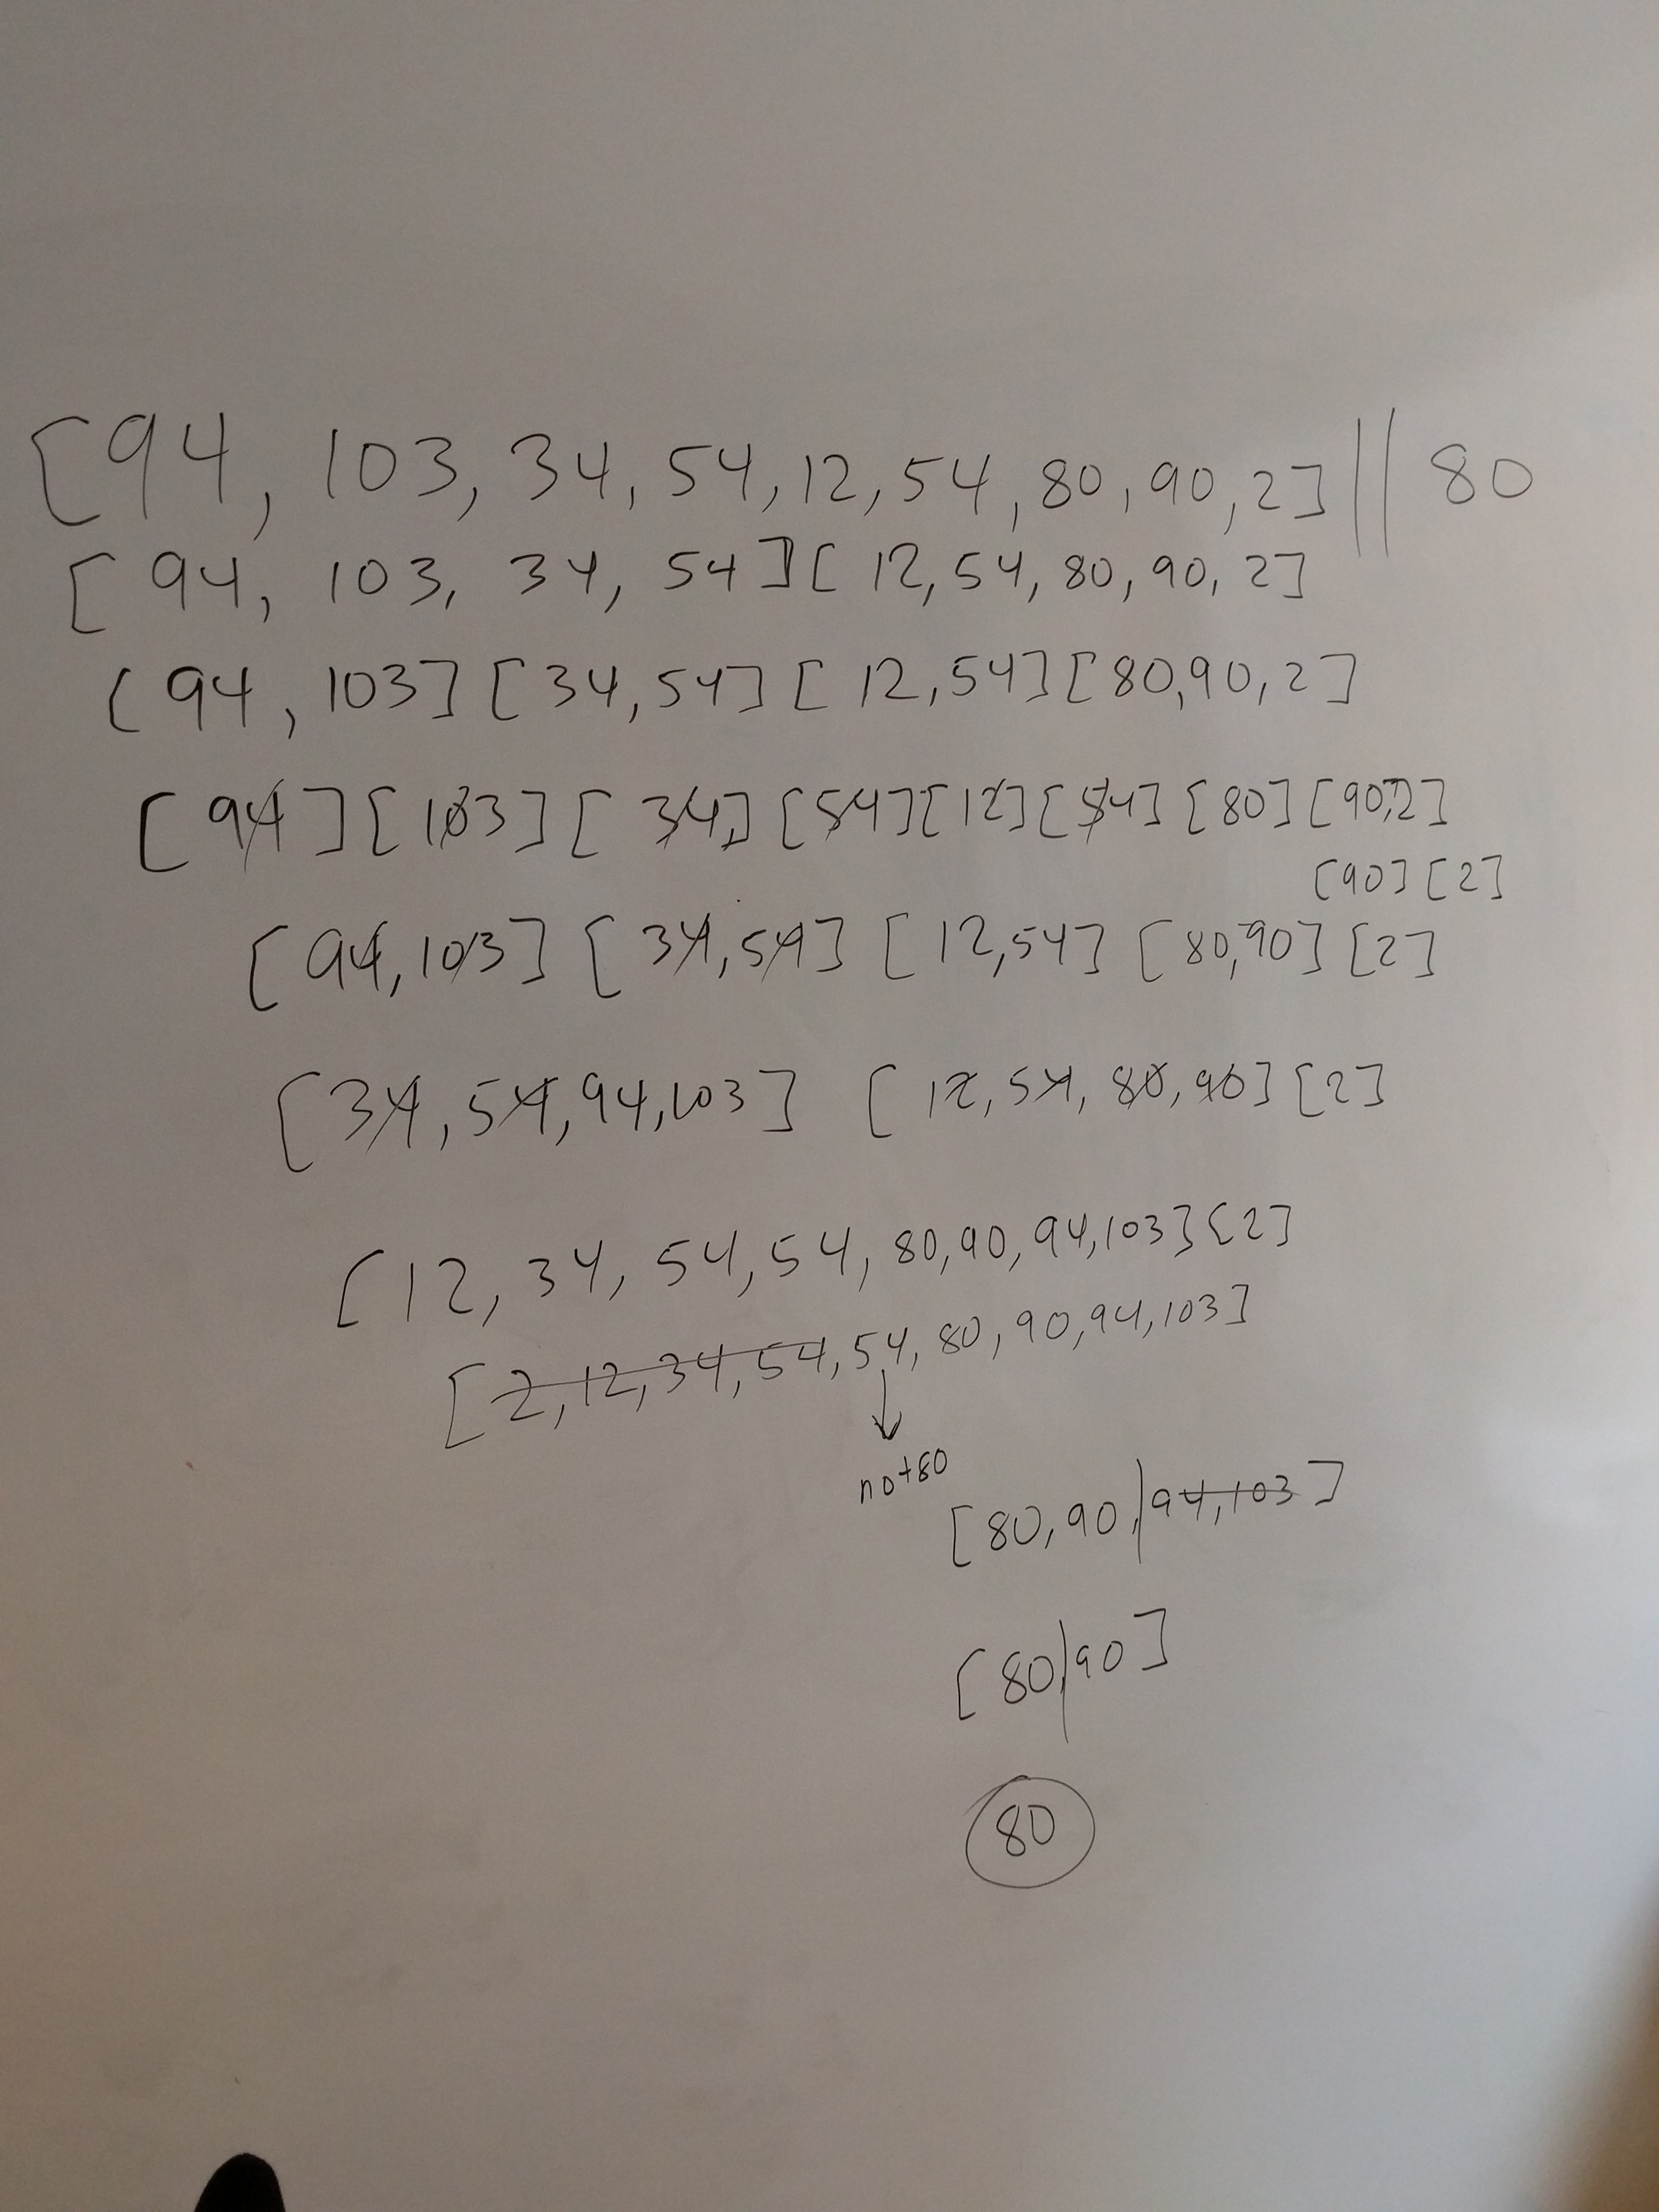 [94, 103, 34, 54, 12, 54, 80, 90, 2] || 80
[94, 103, 34, 54] [12, 54, 80, 90, 2]
[94, 103] [34, 54] [12, 54] [80, 90, 2]
[94] [103] [34,] [54] [12] [54] [80] [90,2]
[90] [2]
[94, 103] [34, 54] [12, 54] [80, 90] [2]
[34, 54, 94, 103] [12, 54, 80, 90] [2]
[12, 34, 54, 54, 80, 90, 94, 103] [2]
[2, 12, 34, 54, 54, 80, 90, 94, 103]
not 80
[80, 90, | 94, 103]
[80, | 90]
80